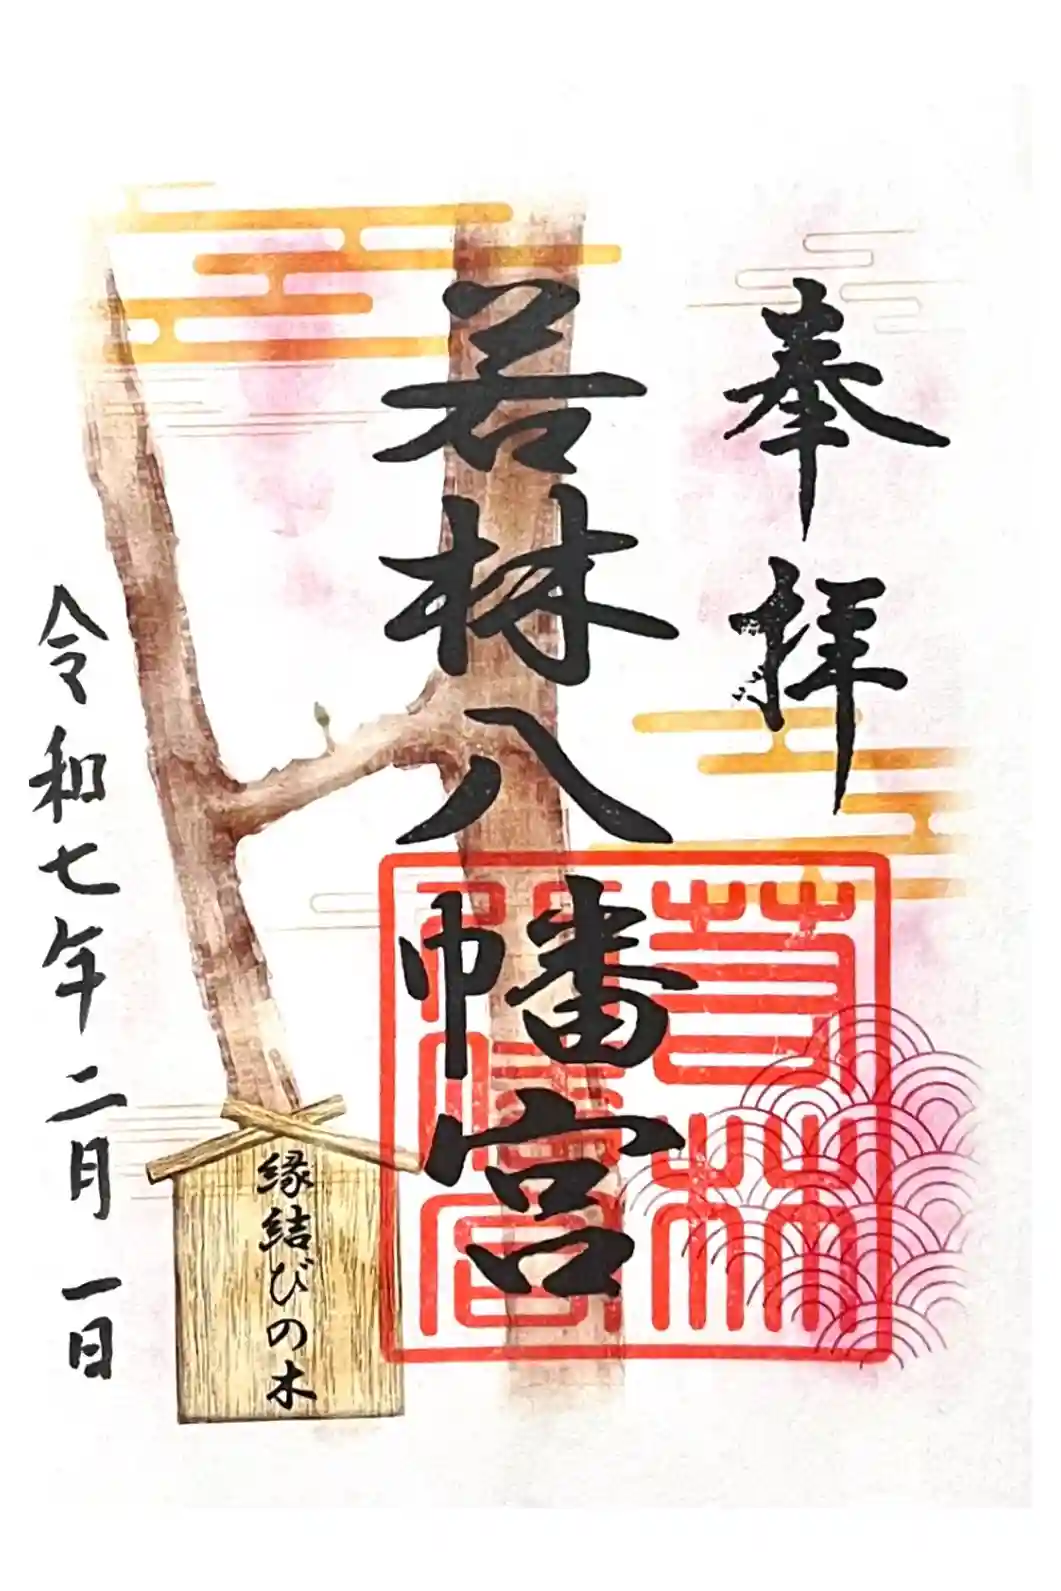 奉拝
若林八幡宮
若林
八幡宮
縁結びの木
令和七年二月一日